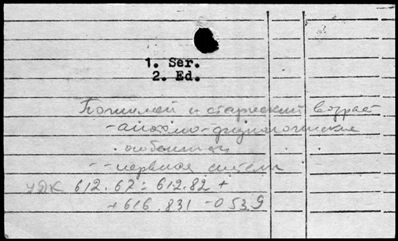 1. Ser.
2. Ed.
Пожилой и старческий возраст
-анатомо-физиологические
особенности
--нервная система
УДК 612.67:612.82 +
+616.831-053.9